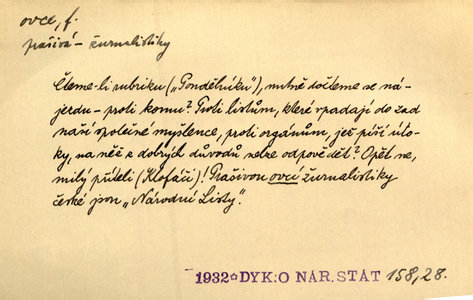 ovce, f.
prašivá – žurnalistiky
Čteme-li rubriku („Pondělníku“), nutně dočteme se ná-
jezdu – proti komu? Proti listům, které vpadají do zad
naší společné myšlence, proti orgánům, jež píší útö-
ky, na něž z dobrých důvodů nelze odpovědět? Opět ne,
milý příteli (Klofáči)! Prašivou ovcí žurnalistiky
české jsou „Národní Listy“.
1932☆DYK: O NÁR. STÁT 158,28.